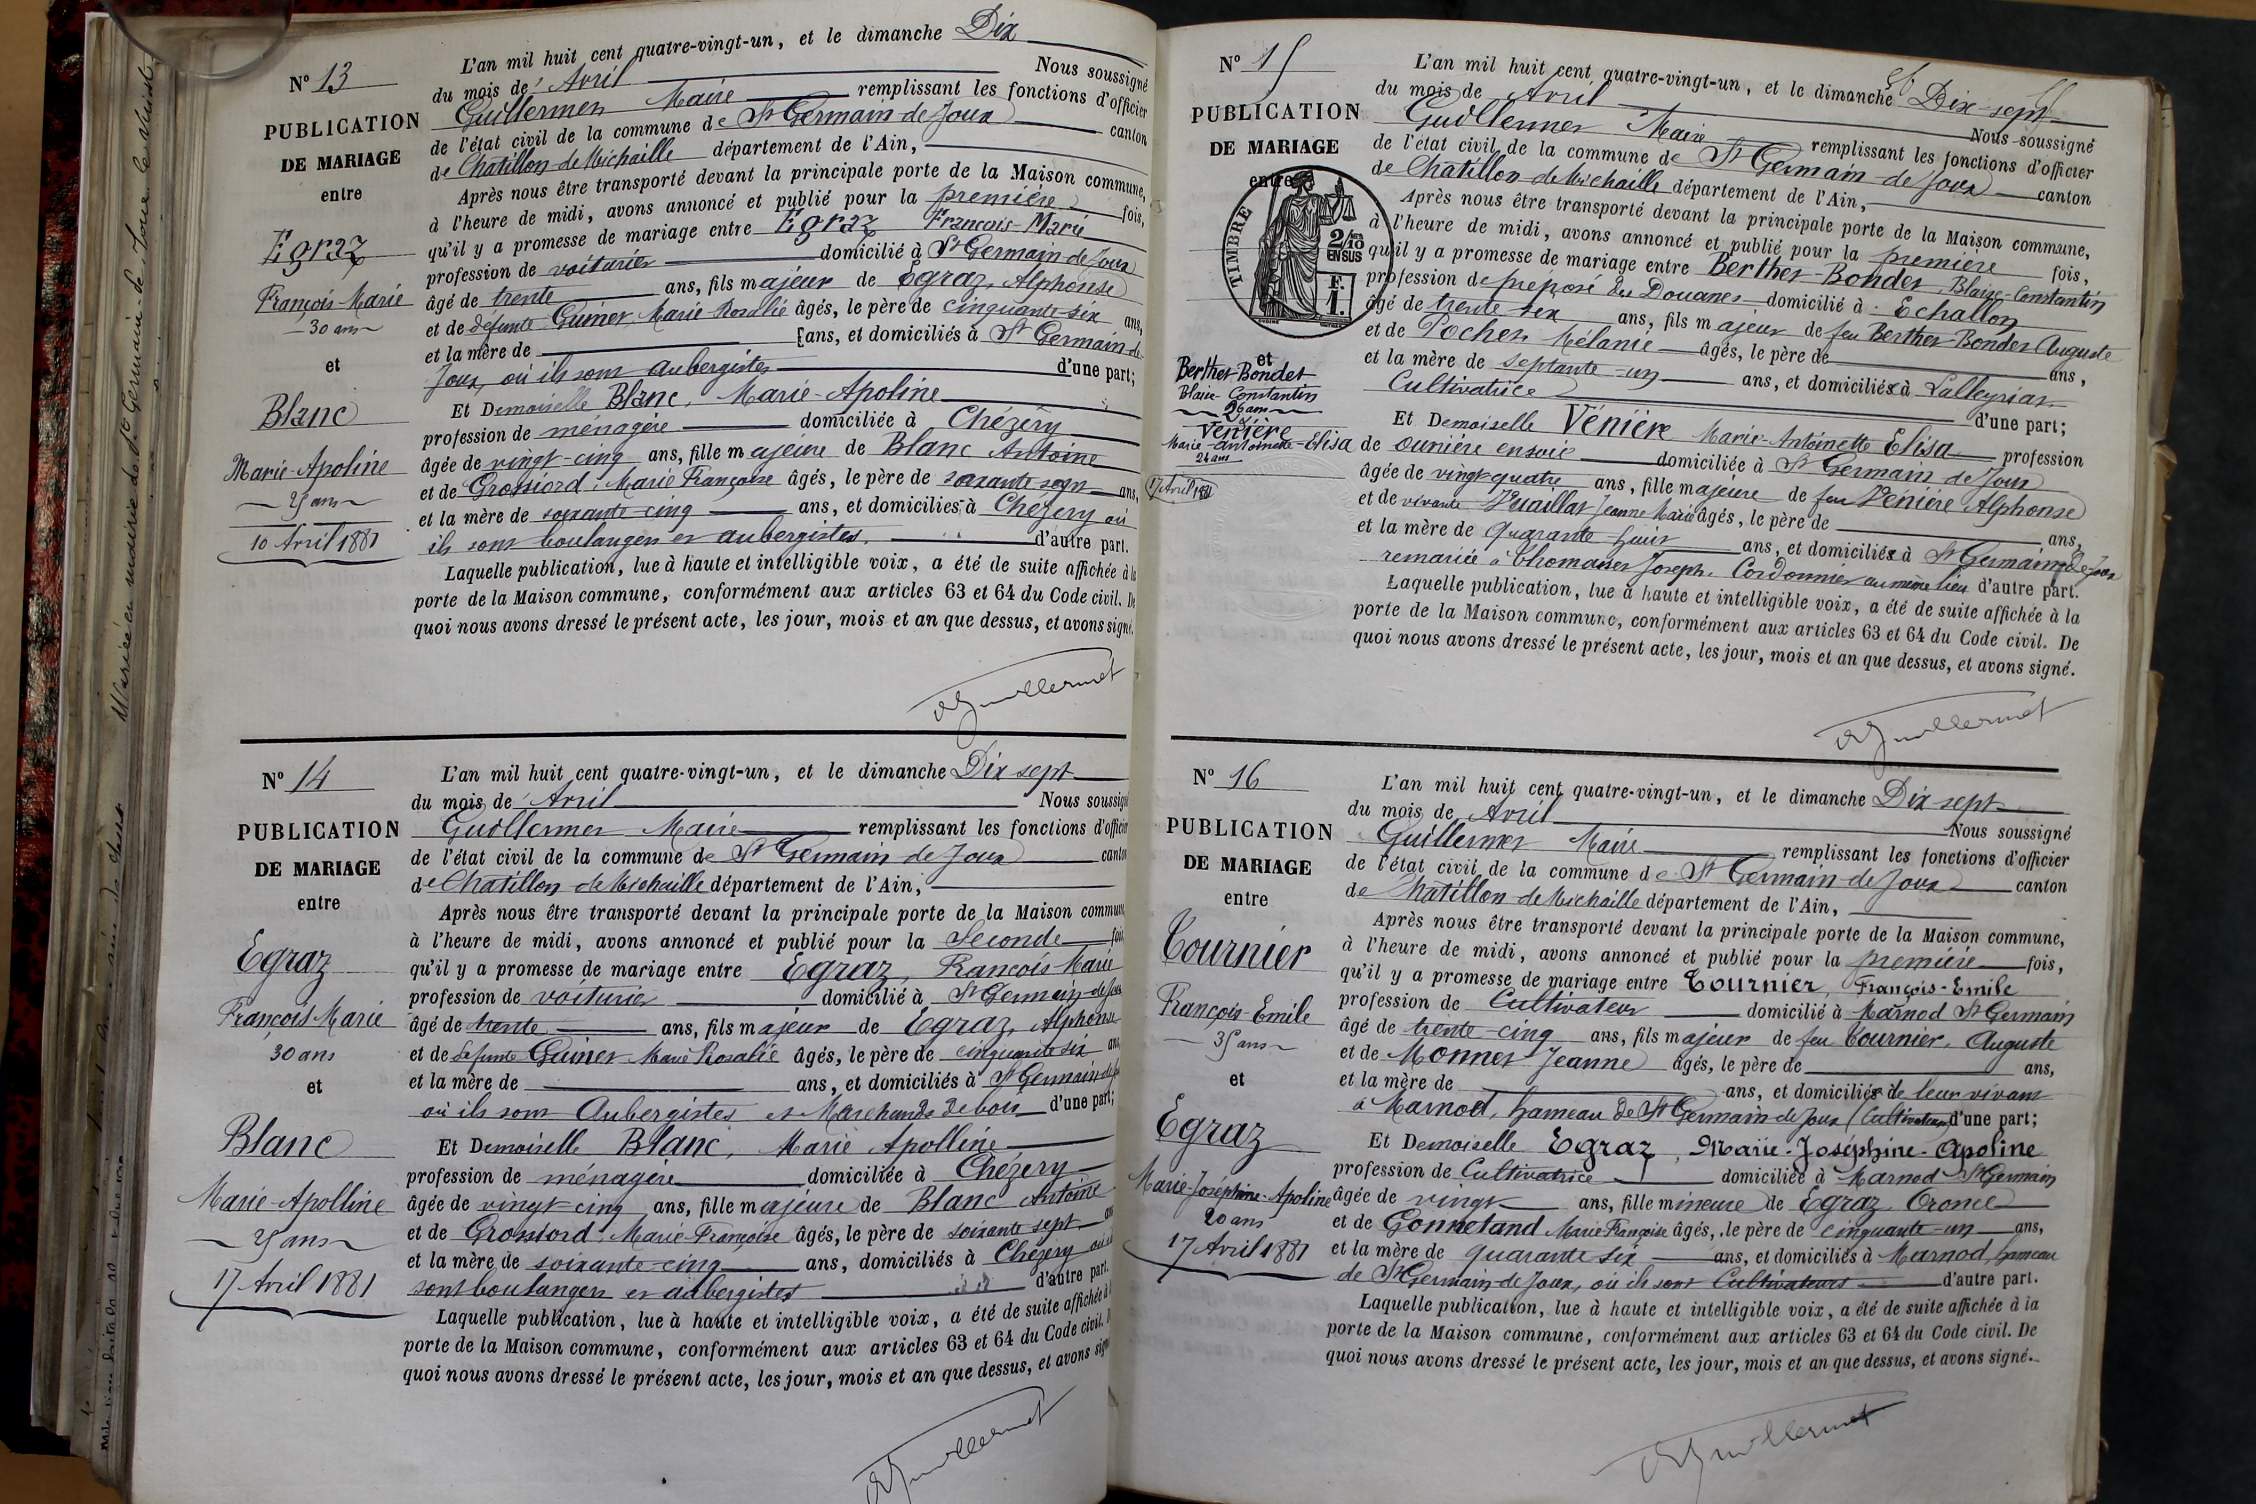 N° 13
PUBLICATION
DE MARIAGE
entre
Egraz
François Marie
30 ans
et
Blanc
Marie-Apoline
25 ans
10 Avril 1881
L'an mil huit cent quatre-vingt-un, et le dimanche Dix
du mois de Avril Nous soussigné
Guillermet Maire remplissant les fonctions d'officier
de l'état civil de la commune de St Germain-de-Joux canton
de Chatillon-de-Michaille département de l'Ain,
Après nous être transporté devant la principale porte de la Maison commune,
à l'heure de midi, avons annoncé et publié pour la première fois,
qu'il y a promesse de mariage entre Egraz François-Marie
profession de voiturier domicilié à St Germain de Joux
âgé de trente ans, fils majeur de Egraz, Alphonse
et de défunte Guinet, Marie Rosalie âgés, le père de cinquante six ans,
et la mère de ans, et domiciliés à St Germain-de-
Joux, où ils sont aubergistes d'une part;
Et Demoiselle Blanc, Marie-Apoline
profession de ménagère domiciliée à Chézery
âgée de vingt-cinq ans, fille majeure de Blanc Antoine
et de Grossiord, Marie Françoise âgés, le père de soixante sept ans,
et la mère de soixante-cinq ans, et domiciliés à Chézery où
ils sont boulanger et aubergistes. d'autre part.
Laquelle publication, lue à haute et intelligible voix, a été de suite affichée à la
porte de la Maison commune, conformément aux articles 63 et 64 du Code civil. De
quoi nous avons dressé le présent acte, les jour, mois et an que dessus, et avons signé.
Guillermet
N° 14
PUBLICATION
DE MARIAGE
entre
Egraz
François Marie
30 ans
et
Blanc
Marie-Apolline
25 ans
17 Avril 1881
L'an mil huit cent quatre-vingt-un, et le dimanche Dix sept
du mois de Avril Nous soussigné
Guillermet Maire remplissant les fonctions d'officier
de l'état civil de la commune de St Germain de Joux canton
de Chatillon-de-Michaille département de l'Ain,
Après nous être transporté devant la principale porte de la Maison commune,
à l'heure de midi, avons annoncé et publié pour la Seconde fois,
qu'il y a promesse de mariage entre Egraz, François Marie
profession de voiturier domicilié à St Germain-de-Joux
âgé de trente ans, fils majeur de Egraz, Alphonse
et de défunte Guinet Marie Rosalie âgés, le père de cinquante six ans,
et la mère de ans, et domiciliés à St Germain-de-Joux
où ils sont Aubergistes et Marchands de bois d'une part;
Et Demoiselle Blanc, Marie Apolline
profession de ménagère domiciliée à Chézery
âgée de vingt-cinq ans, fille majeure de Blanc Antoine
et de Grossiord, Marie Françoise âgés, le père de soixante sept ans
et la mère de soixante-cinq ans, domiciliés à Chézery où ils
sont boulanger et aubergistes d'autre part.
Laquelle publication, lue à haute et intelligible voix, a été de suite affichée à la
porte de la Maison commune, conformément aux articles 63 et 64 du Code civil. De
quoi nous avons dressé le présent acte, les jour, mois et an que dessus, et avons signé
Guillermet
N° 15
PUBLICATION
DE MARIAGE
entre
TIMBRE
2/10
EN SUS
F.
1.
et
Berthet-Bondet
Blaise-Constantin
26 ans
et
Venière
Marie-Antoinette-Elisa
24 ans
17 Avril 1881
L'an mil huit cent quatre-vingt-un, et le dimanche Dix-sept
du mois de Avril Nous soussigné
Guillermet Maire remplissant les fonctions d'officier
de l'état civil de la commune de St Germain-de-Joux canton
de Chatillon de Michaille département de l'Ain,
Après nous être transporté devant la principale porte de la Maison commune,
à l'heure de midi, avons annoncé et publié pour la première fois,
qu'il y a promesse de mariage entre Berthet-Bondet, Blaise-Constantin
profession de préposé des Douanes domicilié à Echallon
âgé de trente six ans, fils majeur de feu Berthet-Bondet Auguste
et de Pochet Mélanie âgés, le père de ans,
et la mère de septante-un ans, et domiciliés à Lalleyriat
Cultivatrice d'une part;
Et Demoiselle Vénière Marie-Antoinette Elisa profession
de ouvrière en soie domiciliée à St Germain de Joux
âgée de vingt-quatre ans, fille majeure de feu Venière Alphonse
et de vivante Vuaillat Jeanne Marie âgés, le père de ans,
et la mère de quarante-huit ans, et domiciliés à St Germain-de-Joux
remariée à Thomasset Joseph, Cordonnier au même lieu d'autre part.
Laquelle publication, lue à haute et intelligible voix, a été de suite affichée à la
porte de la Maison commune, conformément aux articles 63 et 64 du Code civil. De
quoi nous avons dressé le présent acte, les jour, mois et an que dessus, et avons signé.
Guillermet
N° 16
PUBLICATION
DE MARIAGE
entre
Tournier
François-Emile
35 ans
et
Egraz
Marie-Joséphine-Apoline
20 ans
17 Avril 1881
L'an mil huit cent quatre-vingt-un, et le dimanche Dix sept
du mois de Avril Nous soussigné
Guillermet Maire remplissant les fonctions d'officier
de l'état civil de la commune de St Germain-de-Joux canton
de Chatillon de Michaille département de l'Ain,
Après nous être transporté devant la principale porte de la Maison commune,
à l'heure de midi, avons annoncé et publié pour la première fois,
qu'il y a promesse de mariage entre Tournier, François-Emile
profession de Cultivateur domicilié à Marnod St Germain
âgé de trente-cinq ans, fils majeur de feu Tournier, Auguste
et de Monnet Jeanne âgés, le père de ans,
et la mère de ans, et domiciliés de leur vivant
à Marnod, hameau de St Germain-de-Joux (Cultivateurs) d'une part;
Et Demoiselle Egraz, Marie-Joséphine-Apoline
profession de Cultivatrice domiciliée à Marnod St Germain
âgée de vingt ans, fille mineure de Egraz Oronce
et de Gonnetand Marie Françoise âgés, le père de cinquante-un ans,
et la mère de quarante six ans, et domiciliés à Marnod, hameau
de St Germain-de-Joux, où ils sont Cultivateurs d'autre part.
Laquelle publication, lue à haute et intelligible voix, a été de suite affichée à la
porte de la Maison commune, conformément aux articles 63 et 64 du Code civil. De
quoi nous avons dressé le présent acte, les jour, mois et an que dessus, et avons signé.
Guillermet